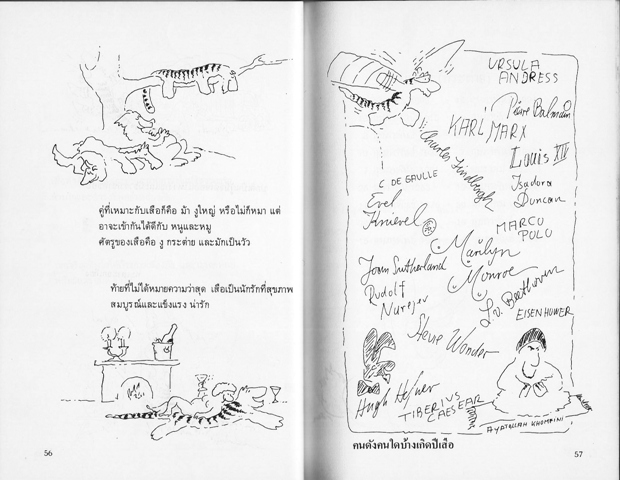 คู่ที่เหมาะกับเสือก็คือ ม้า งูใหญ่ หรือไม่ก็หมา แต่
อาจจะเข้ากันได้ดีกับ หนูและหมู
ศัตรูของเสือคือ งู กระต่าย และมักเป็นวัว
ท้ายที่ไม่ได้หมายความว่าสุด เสือเป็นนักรักที่สุขภาพ
สมบูรณ์และแข็งแรง น่ารัก
56
URSULA
ANDRESS
Pierre Balmain
KARL MARX
Charles Lindbergh
Louis XIV
C. DE GAULLE
Isadora
Duncan
Evel
Knievel
MARCO
POLO
Marilyn
Monroe
Joan Sutherland
Rudolf
Nurejev
L.v. Beethoven
EISENHOWER
Stevie Wonder
Hugh Hefner
TIBERIUS
CAESEAR
AYATOLLAH KHOMAINI
คนดังคนใดบ้างเกิดปีเสือ
57